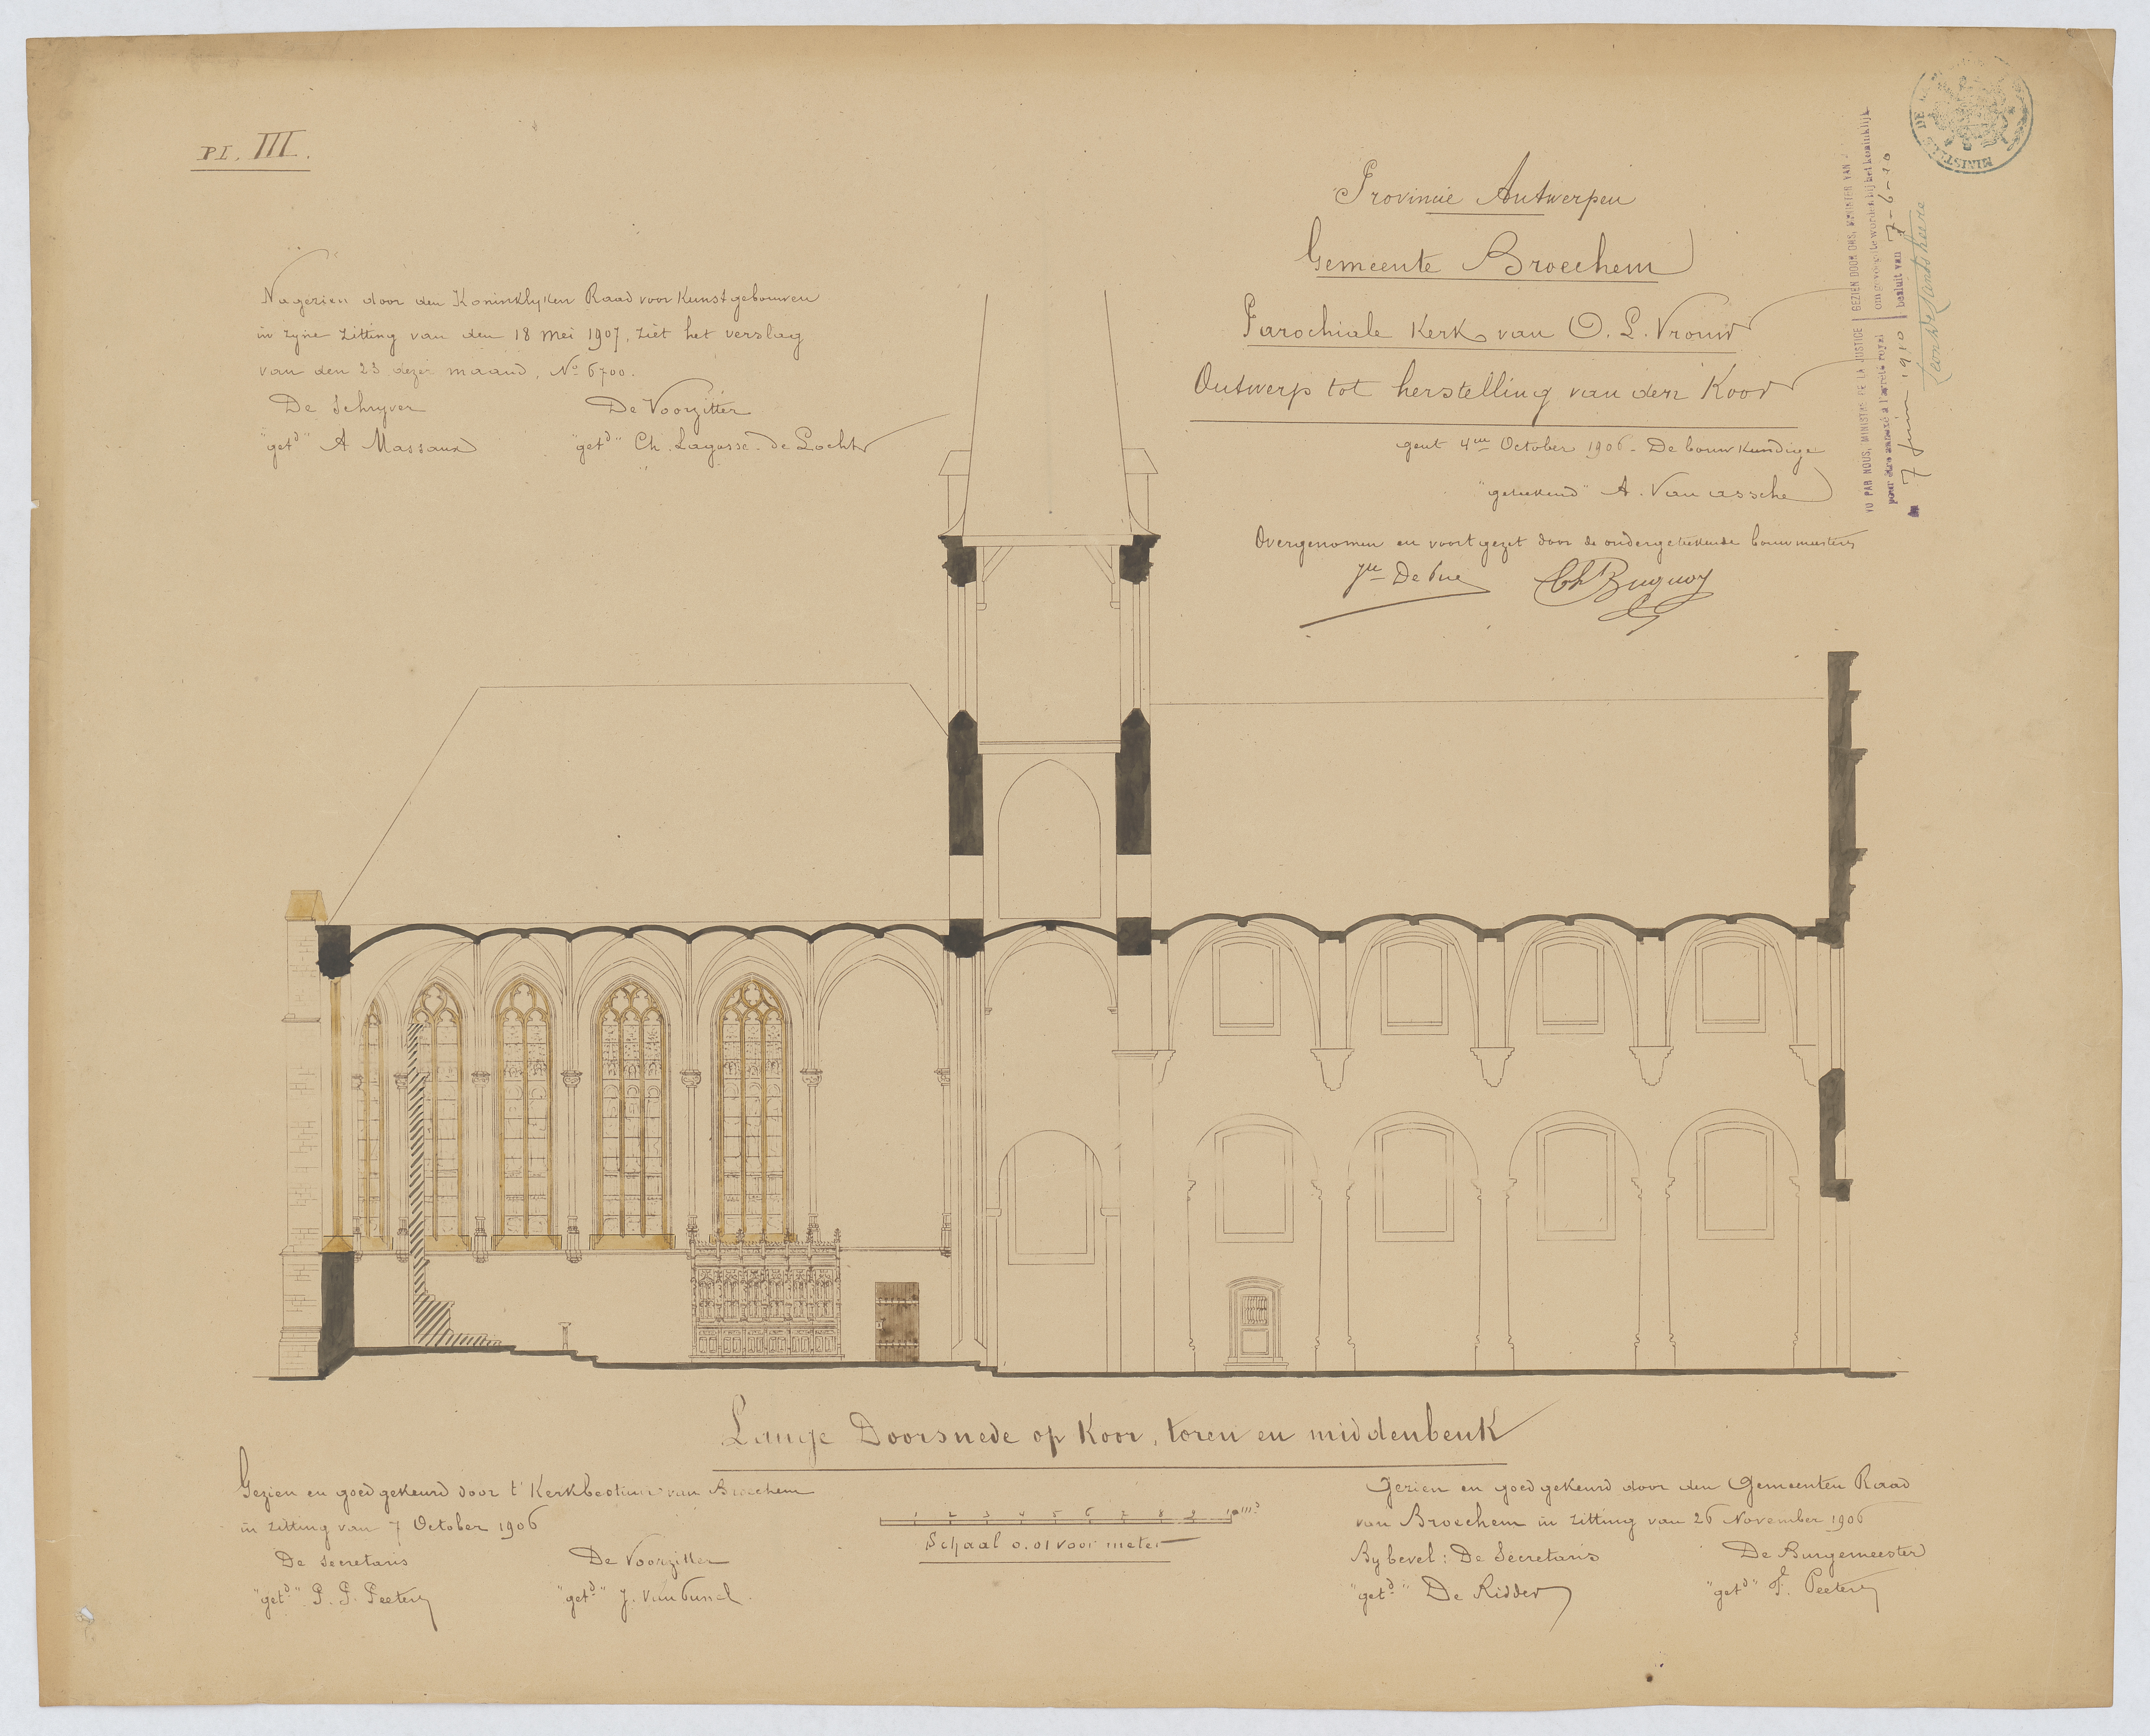 Pl. III.
Provincie Antwerpen
Gemeente Broechem
Parochiale Kerk van O. L. Vrouw
Ontwerp tot herstelling van den Koor
gent 4en October 1906 - De bouwkundige
"geteekend" A. Van assche
Overgenomen en voortgezet door de ondergeteekende bouwmeesters
Ch Buquoy
Nagezien door den Koninklyken Raad voor Kunstgebouwen
in zyne zitting van den 18 mei 1907, ziet het verslag
van den 23 dezer maand, No 6700.
De Schryver De Voorzitter
"getd" A Massaux "getd" Ch. Lagasse-de Locht
VU PAR NOUS, MINISTRE DE LA JUSTICE
pour être annexé à l'arrêté royal
7 juin 1910
GEZIEN DOOR ONS, MINISTER VAN
om gevoegd te worden bij het koninklijk
besluit van 7-6-10
MINISTÈRE DE
Lange Doorsnede op Koor, toren en middenbeuk
Gezien en goedgekeurd door t' Kerkbestuur van Broechem
in zitting van 7 October 1906
De Secretaris De Voorzitter
"getd" P. J. Peeters "getd" J.
1 2 3 4 5 6 7 8 9 10 ms
Schaal 0.01 voor meter
Gezien en goedgekeurd door den Gemeenten Raad
van Broechem in zitting van 26 November 1906
By bevel: De Secretaris De Burgemeester
"getd" De Ridder "getd" F. Peeters